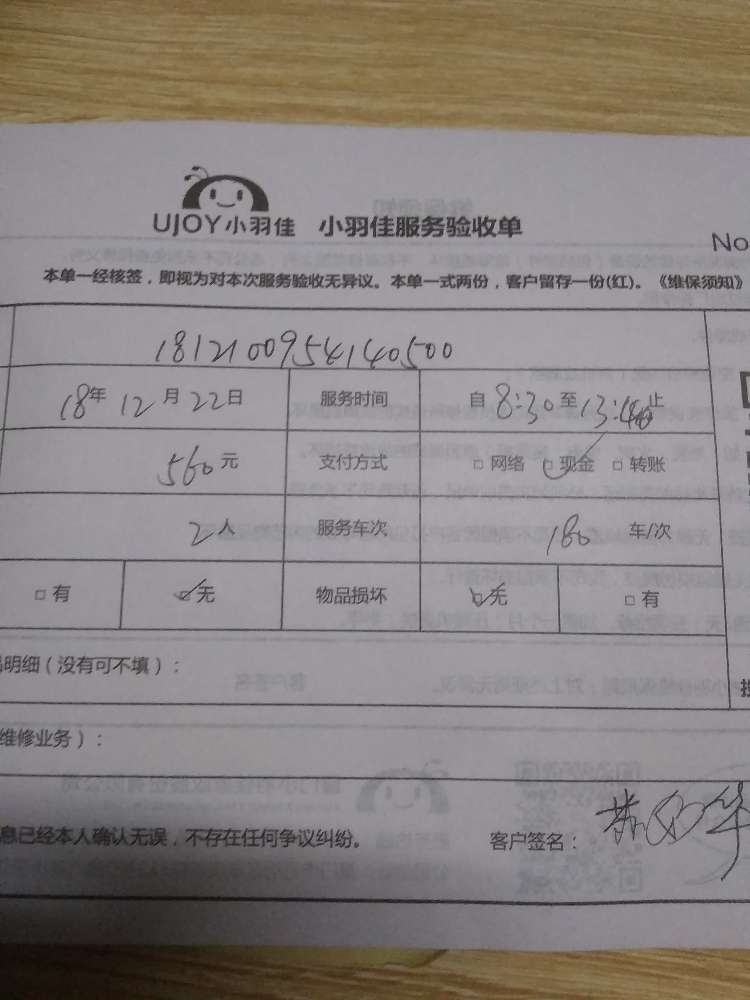 UJOY小羽佳 小羽佳服务验收单
No
本单一经核签，即视为对本次服务验收无异议。本单一式两份，客户留存一份(红)。《维保须知》
1812100954140500
18年 12月 22日 服务时间 自 8:30 至 13:40 止
560元 支付方式 □ 网络 □ 现金 □ 转账
2人 服务车次 180 车/次
□ 有 □ 无 物品损坏 □ 无 □ 有
明细（没有可不填）：
维修业务）：
息已经本人确认无误，不存在任何争议纠纷。 客户签名：